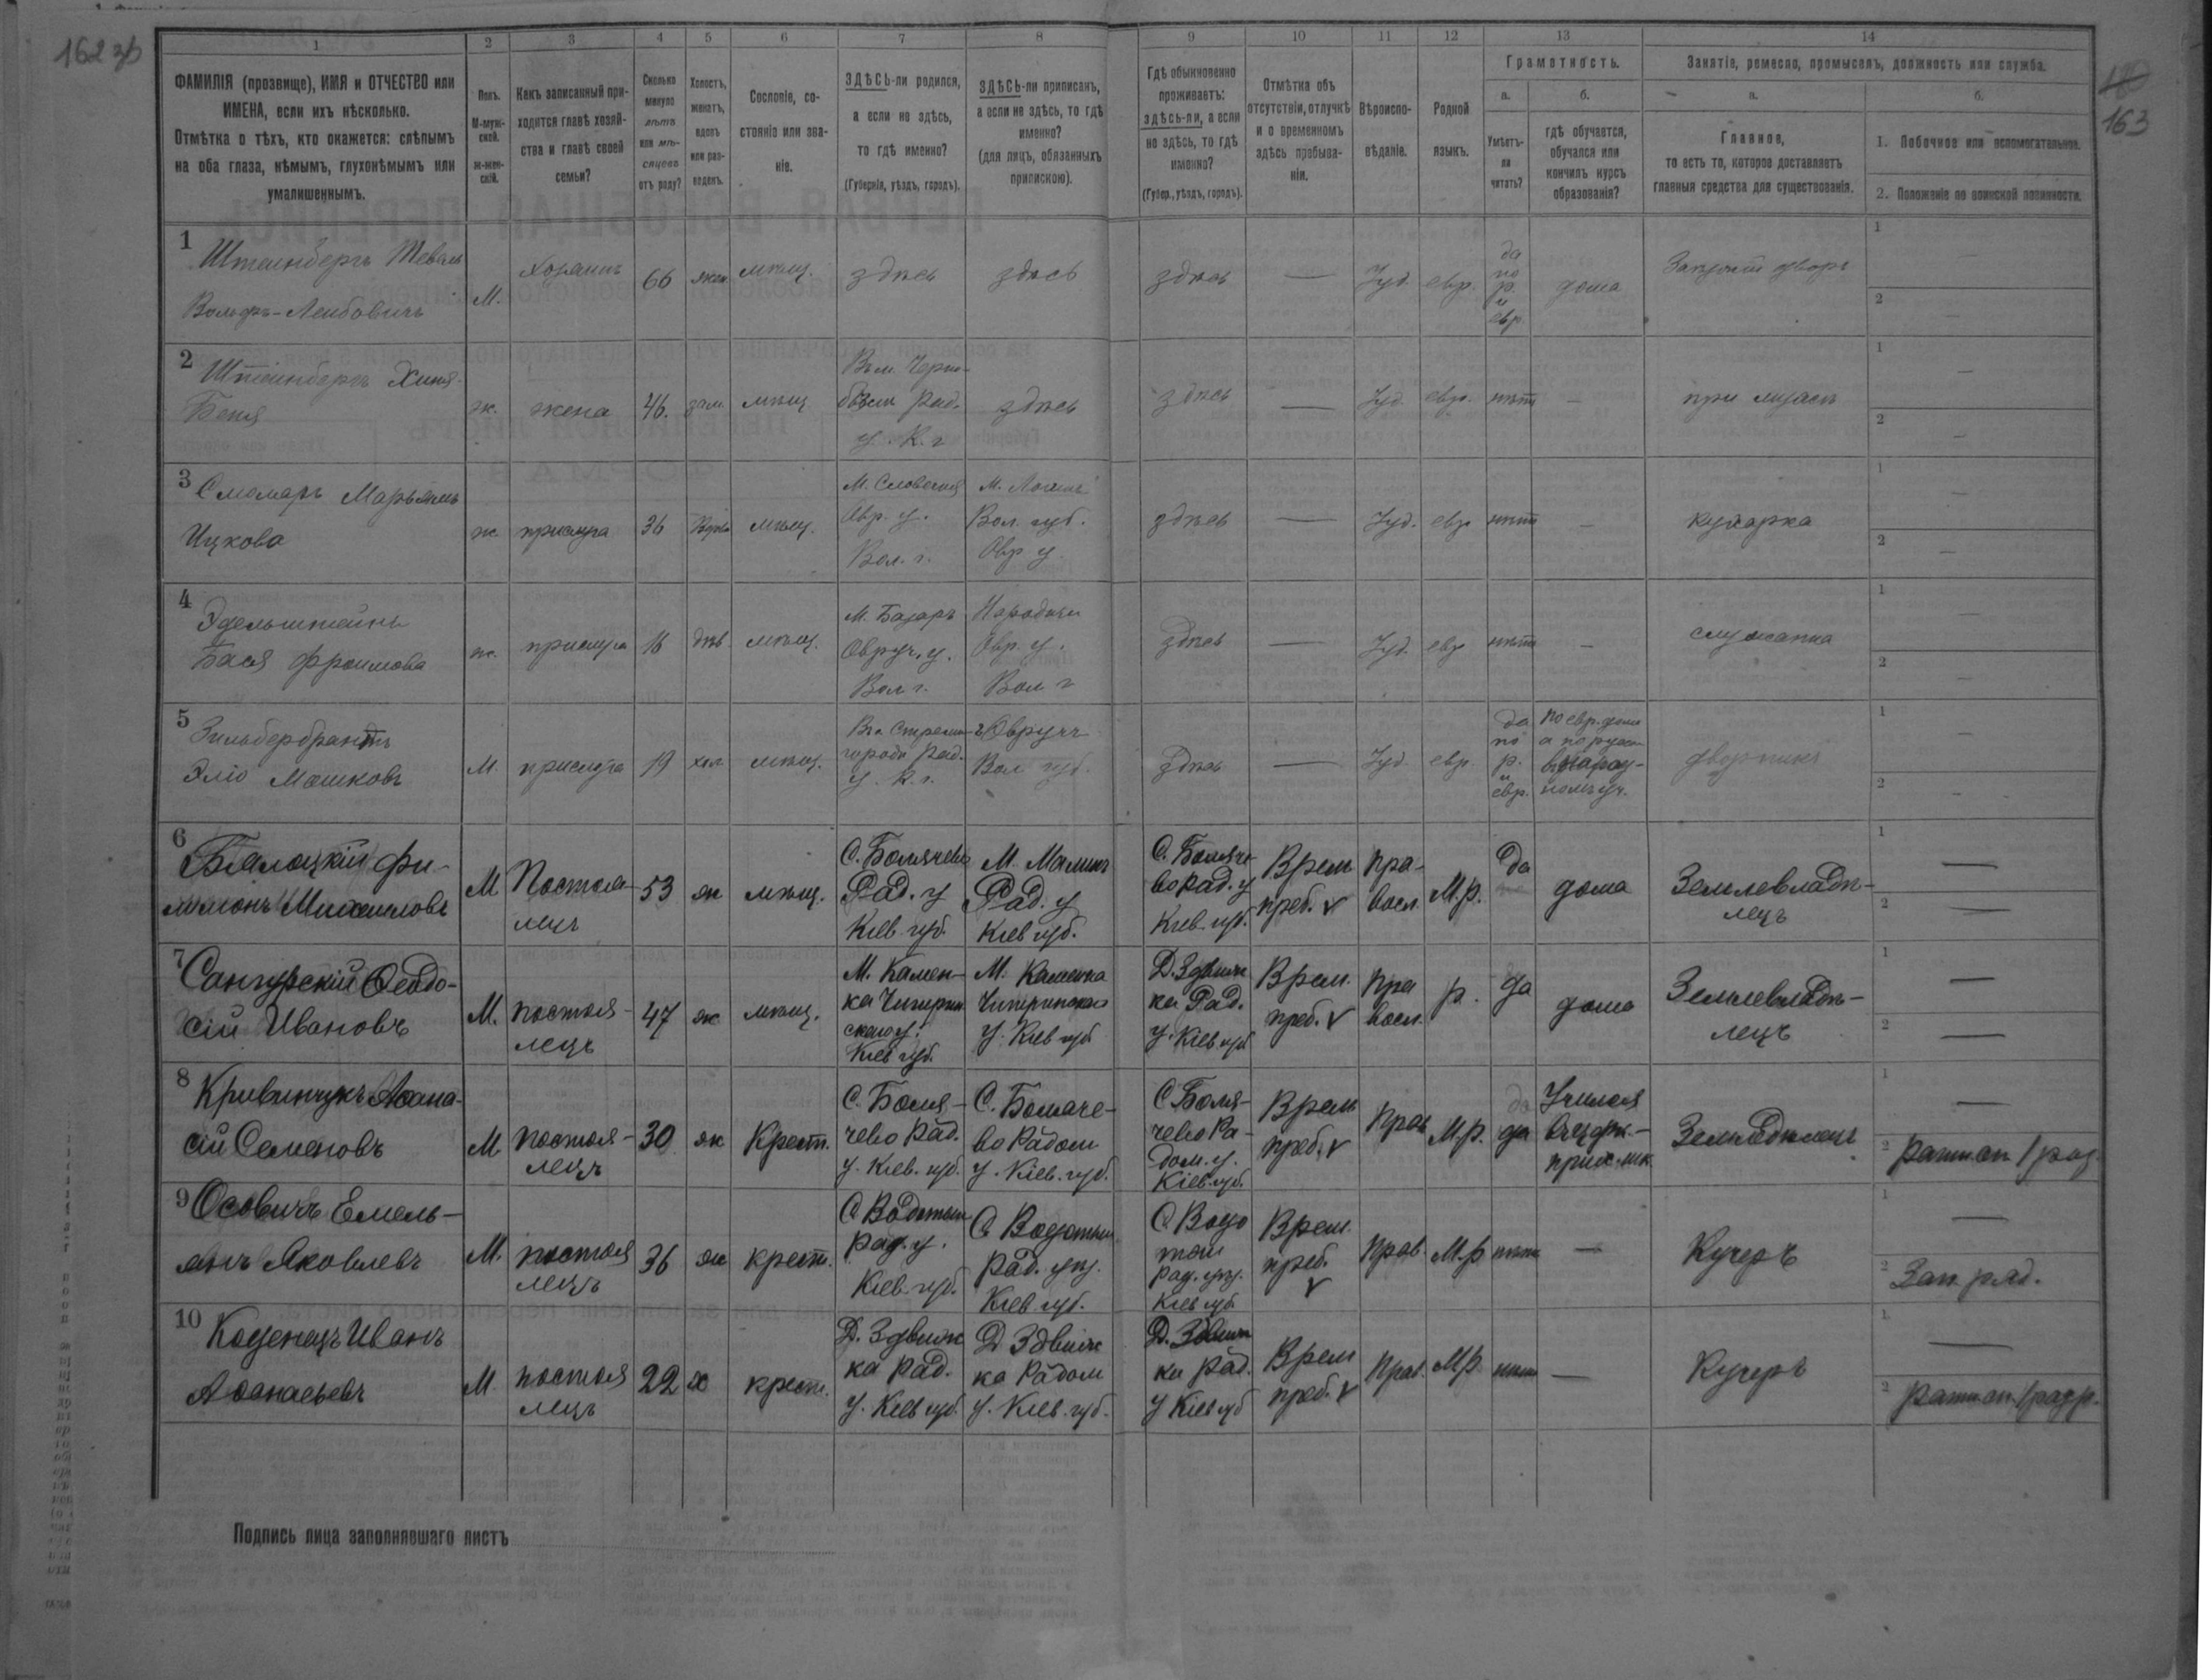 162 об
180
163
1
2
3
4
5
6
7
8
9
10
11
12
13
14
ФАМИЛІЯ (прозвище), ИМЯ и ОТЧЕСТВО или
ИМЕНА, если ихъ нѣсколько.
Отмѣтка о тѣхъ, кто окажется: слѣпымъ
на оба глаза, нѣмымъ, глухонѣмымъ или
умалишеннымъ.
Полъ.
М-муж-
ской.
ж-жен-
скій.
Какъ записанный при-
ходится главѣ хозяй-
ства и главѣ своей
семьи?
Сколько
минуло
лѣтъ
или мѣ-
сяцевъ
отъ роду?
Холостъ,
женатъ,
вдовъ
или раз-
веденъ.
Сословіе, со-
стояніе или зва-
ніе.
ЗДѢСЬ-ли родился,
а если не здѣсь,
то гдѣ именно?
(Губернія, уѣздъ, городъ).
ЗДѢСЬ-ли приписанъ,
а если не здѣсь, то гдѣ
именно?
(для лицъ, обязанныхъ
припискою).
Гдѣ обыкновенно
проживаетъ:
здѣсь-ли, а если
не здѣсь, то гдѣ
именно?
(Губер., уѣздъ, городъ).
Отмѣтка объ
отсутствіи, отлучкѣ
и о временномъ
здѣсь пребыва-
ніи.
Вѣроиспо-
вѣданіе.
Родной
языкъ.
Грамотность.
а.
Умѣетъ-
ли
читать?
б.
гдѣ обучается,
обучался или
кончилъ курсъ
образованія?
Занятіе, ремесло, промыселъ, должность или служба.
а.
Главное,
то есть то, которое доставляетъ
главныя средства для существованія.
б.
1. Побочное или вспомогательное.
2. Положеніе по воинской повинности.
1
Штеинбергъ Тевель
Вольфъ-Леибовичъ
М.
Хозяинъ
66
жен.
мѣщ.
здѣсь
здѣсь
здѣсь
—
Іуд.
евр.
да
по
р.
и
евр.
дома
дворъ
1 —
2
2
Штеинбергъ Хиня-
Бения
ж.
жена
46.
зам.
мѣщ
Въ м. Черно-
былѣ Рад.
у. К. г
здѣсь
здѣсь
—
Іуд.
евр.
нѣтъ
—
при мужѣ
1 —
2 —
3
Смоляръ Марьямъ
Ицкова
ж.
прислуга
36
вдова
мѣщ.
М. Словечна
Овр. у.
Вол. г.
М.
Вол. губ.
Овр у.
здѣсь
—
Іуд.
евр
нѣтъ
—
кухарка
1 —
2 —
4
Эдельштейнъ
Бася Фроимова
ж.
прислуга
16
дѣв.
мѣщ.
М. Базаръ
Овруч. у.
Вол г.
Народичи
Овр. у.
Вол. г
здѣсь
—
Іуд.
евр
нѣтъ
—
служанка
1 —
2 —
5
Зильбербрандтъ
Эліо Мошковъ
М.
прислуга
19
хол.
мѣщ.
городѣ Рад.
у. К. г.
г Овручъ
Вол губ.
Здѣсь
—
Іуд.
евр.
да
по
р.
и
евр.
по евр. дома
а по русски
въ народ-
номъ уч.
дворникъ
1 —
2 —
6
Бялоцкій Фи-
лимонъ Михаиловъ
М
Постоя-
лецъ
53
ж
мѣщ.
С. Болячево
Рад. у
Кіев. губ.
М. Малинъ
Рад. у
Кіев губ.
С. Боляче-
во Рад. у
Кіев. губ.
Врем
преб. v
Пра-
восл.
М.р.
Да
дома
Землевладѣ-
лецъ
1 —
2 —
7
Сангурскій Ѳеодо-
сій Ивановъ
М.
постоя-
лецъ
47
ж
мѣщ.
М. Камен-
ка Чигирин
скаго у.
Кіев губ.
М. Каменка
Чигиринскаго
у. Кіев губ
Д. Здвиж
ка Рад.
у. Кіев губ
Врем.
преб. v
Пра
восл.
р.
да
дома
Землевладѣ-
лецъ
1 —
2 —
8
Кривинчукъ Аѳана-
сій Семеновъ
М.
постоя-
лецъ
30
ж
Крест.
С. Боля-
чево Рад.
у. Кіев. губ.
С. Боляче-
во Радом
у. Кіев. губ.
С Боля-
чево Ра-
дом. у.
Кіев. губ.
Врем
преб. v
Прав
М.р.
да
Учился
въ церк.-
прих. шк
Земледѣлецъ
1 —
2 ратн. оп. 1 раз.
9
Осовичъ Емель-
янъ Яковлевъ
М.
постоя
лецъ
36
ж
крест.
С Водотыи
Рад. у.
Кіев. губ.
С Водотыи
Рад. уѣз.
Кіев. губ.
С Водо
тыи
Рад. уѣз.
Кіев губ
Врем.
преб.
v
Прав.
М.р
нѣтъ
—
Кучеръ
1 —
2 Зап. ряд.
10
Коденецъ Иванъ
Аѳанасьевъ
М.
постоя
лецъ
22
х
крест.
Д. Здвиж
ка Рад.
у. Кіев губ.
Д Здвиж
ка Радом
у. Кіев. губ.
Д. Здвиж
ка Рад.
у Кіев губ
Врем
преб. v
Прав.
М.р.
нѣтъ
—
Кучеръ
1 —
2 ратн. оп. 1 разр.
Подпись лица заполнявшаго листъ